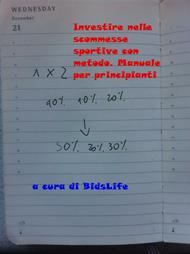 WEDNESDAY
November
21
Investire nelle
scommesse
sportive con
metodo. Manuale
per principianti
1 X 2
40% 40% 20%
50% 20% 30%
a cura di BidsLife